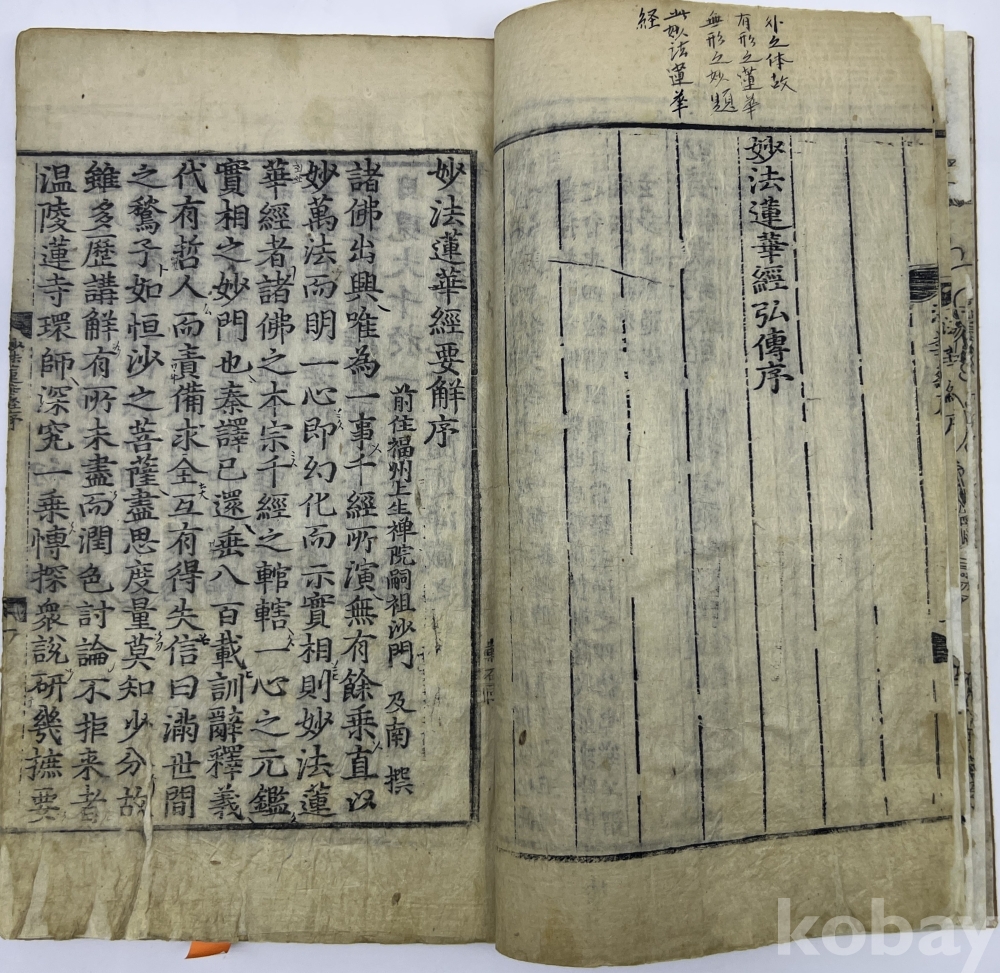 外之体故
有形之蓮華
無形之妙題
此妙法蓮華
経
妙法蓮華經弘傳序
妙法蓮華經要解序
前住福州上生禪院嗣祖沙門 及南 撰
諸佛出興唯為一事千經所演無有餘乘直以
妙萬法而明一心即幻化而示實相則妙法蓮
華經者諸佛之本宗千經之輨轄一心之元鑑
實相之妙門也秦譯已還垂八百載訓辭釋義
代有哲人而責備求全互有得失信曰滿世間
之鶖子如恒沙之菩薩盡思度量莫知少分故
雖多歷講解有所未盡而潤色討論不拒来者
温陵蓮寺環師深究一乘慱探衆說研幾摭要
kobay